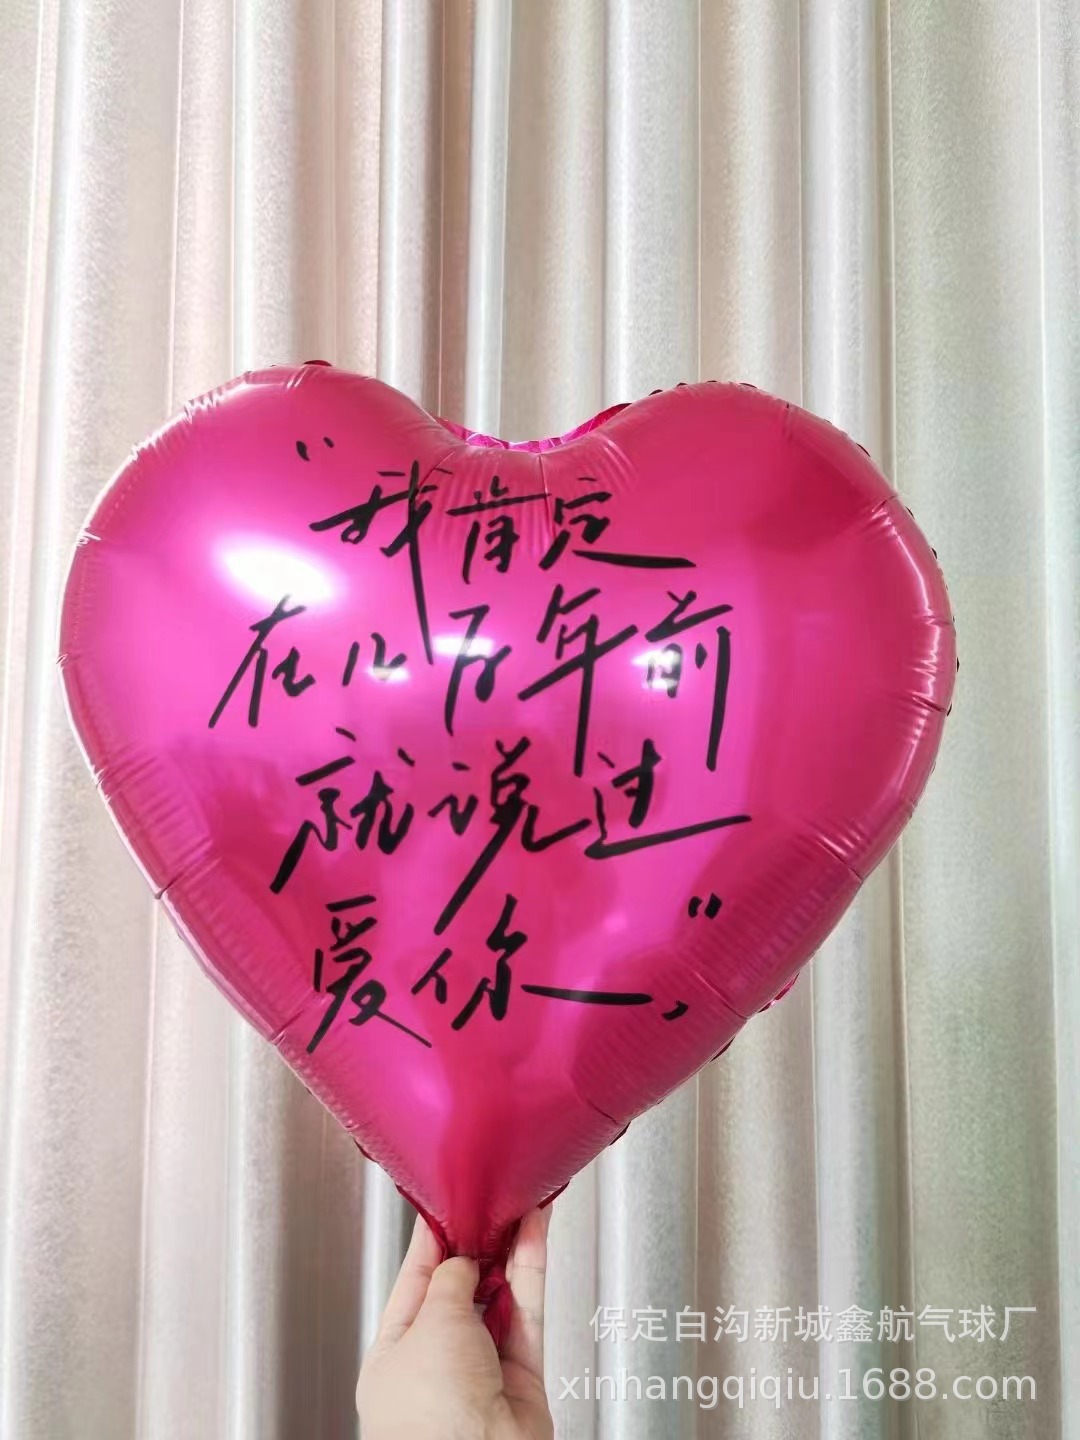 “我肯定
在几万年前
就说过
爱你，”
保定白沟新城鑫航气球厂
xinhangqiqiu.1688.com